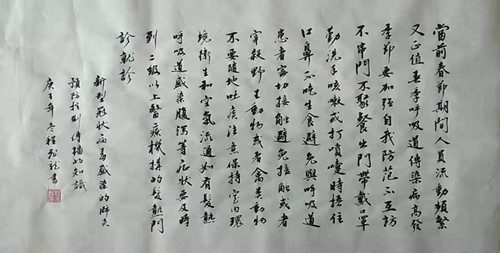 當前春節期間人員流動頻繁
又正值冬季呼吸道傳染病高發
季節要加强自我防范不互訪
不串門不聚餐出門帶戴口罩
勤洗手咳嗽或打噴嚏時捂住
口鼻不吃生食避免與呼吸道
患者密切接觸避免接觸或者
穿殺野生動物或者禽畜動物
不要隨地吐痰注意保持室内環
境衛生和空氣流通如有發熱
呼吸道感染腹瀉等症狀要及時
到二級以上醫療機構的發熱門
診就診
新型冠狀病毒感染的肺炎
預防控制傳播的知識
庚子年
書